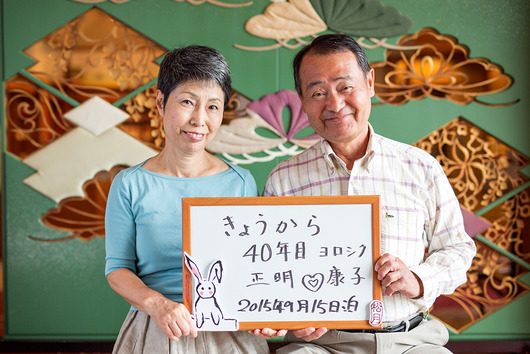 きょうから
40年目 ヨロシク
正明♡康子
2015年9月15日泊
松月